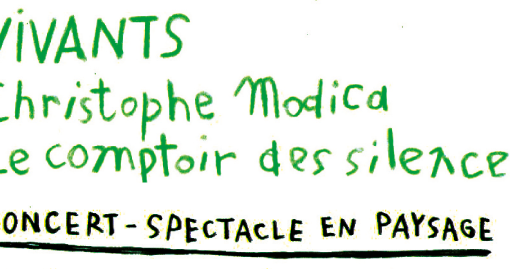 VIVANTS
Christophe Modica
Le comptoir des silence
CONCERT-SPECTACLE EN PAYSAGE